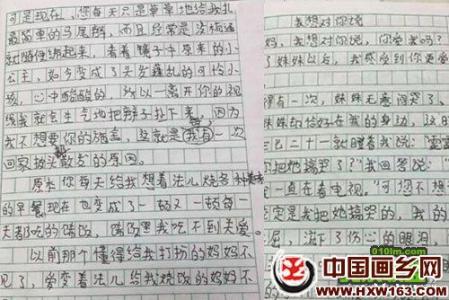 可是现在，您每天只是草草地给我扎
最简单的马尾辫，而且经常是皮筋
就随便绑起来，看着镜子中原来的小
公主，如今变成了头发蓬乱的可怜小
孩，心中酸酸的，所以一离开你的视
线我就会生气地把辫子扯下来，因为
我不想要你的施舍，这就是我有一次
回家披头散发的原因。
原本你每天给我想着法儿烧各种美味
的早餐现在也变成了一顿又一顿每一
天都吃的
里我吃不到关爱。
以前那个懂得给我打扮的妈妈不
见了，变着法儿给我烧饭的妈妈不
我想对你说
妈，我想对你说，你爱我吗？
了妹妹以后，我感受到你更爱
有一次，妹妹无意间哭了，
妹妹恰好在我的身边，这时
二十一就瞪着我说：“
把她搞哭了？”我回答说：“
一直在看电视。”可您不想
定是我把她搞哭的，我的
屈，流下了伤心的眼泪，
010lm.com
中国画乡网
WWW.HXW163.COM